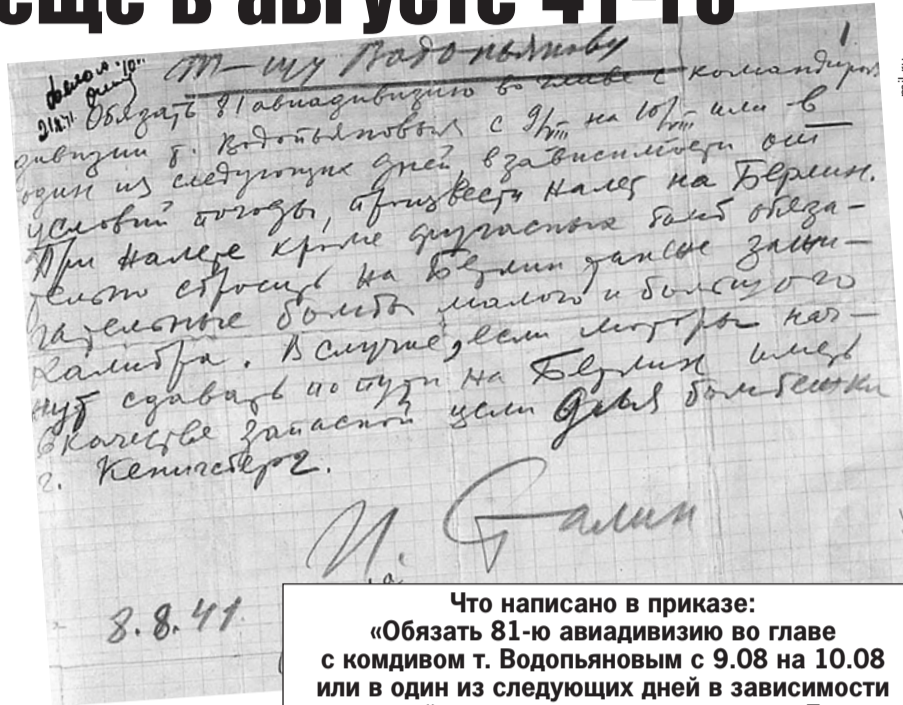 еще в августе 41-го
1
Т-щу Водопьянову
Обязать 81 авиадивизию во главе с командиром
дивизии т. Водопьяновым с 9/VIII на 10/VIII или в
один из следующих дней в зависимости от
условий погоды, произвести налет на Берлин.
При налете кроме фугасных бомб обяза-
тельно сбросить на Берлин также зажи-
гательные бомбы малого и большого
калибра. В случае, если моторы нач-
нут сдавать по пути на Берлин иметь
в качестве запасной цели для бомбежки
г. Кенигсберг.
И. Сталин
8.8.41
Что написано в приказе:
«Обязать 81-ю авиадивизию во главе
с комдивом т. Водопьяновым с 9.08 на 10.08
или в один из следующих дней в зависимости